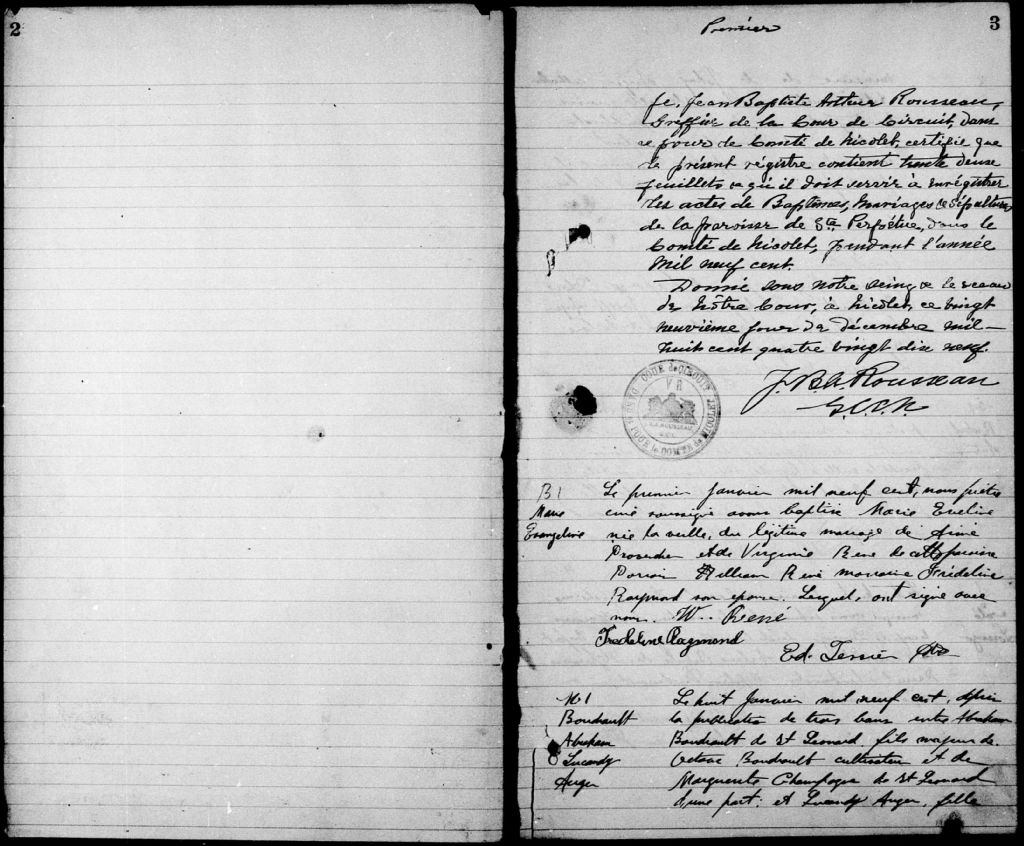 2
3
Premier
Je, Jean Baptiste Arthur Rousseau,
Greffier de la Cour de Circuit dans
et pour le Comté de Nicolet, certifie que
le présent régistre contient trente deux
feuillets & qu'il doit servir à enrégistrer
les actes de Baptêmes, Mariages & Sépultures
de la paroisse de Ste Perpétue, dans le
Comté de Nicolet, pendant l'année
mil neuf cent.
Donné sous notre seing & le sceau
de notre Cour, à Nicolet, ce vingt
neuvième jour de décembre mil
huit cent quatre vingt dix neuf.
J. B. A. Rousseau
G.C.C.N.
COUR de CIRCUIT
V R
POUR le COMTÉ de NICOLET
B 1
Marie
Evangeline
Le premier Janvier mil neuf cent, nous prêtre
curé soussigné avons baptisé Marie Eveline
née la veille, du légitime mariage de Aimé
Provencher et de Virginie René de cette paroisse
Parrain William René marraine Frédeline
Raymond son épouse. Lesquels ont signé avec
nous. W. René
Fredeline Raymond
Ed. Tessier Ptre
M 1
Boudrault
Abraham
&
Lucandy
Auger
Le huit Janvier mil neuf cent, après
la publication de trois bans entre Abraham
Boudrault de St Leonard fils majeur de
Octave Boudrault cultivateur et de
Marguerite Champagne de St Leonard
d'une part; et Lucandy Auger, fille